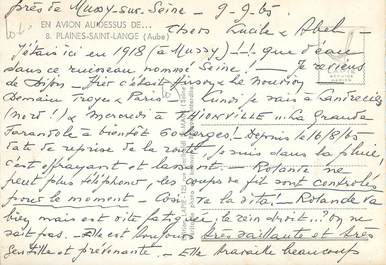 près de Mussy-sur-Seine - 9-9-65
EN AVION AU-DESSUS DE...
8. PLAINES-SAINT-LANGE (Aube)
Chers Lucile & Abel -
J'étais ici en 1918 (à Mussy) - ! que d'eau
dans ce ruisseau nommé Seine! - Je reviens
de Dijon - c'était
Demain Troyes & Paris Lundi je vais à Landrecies
(Nord!) & Mercredi à THIONVILLE ... La Grande
Farandole à bientôt 60 berges! Depuis le 16/8/65
date de reprise de la route je suis dans la pluie,
c'est effrayant et lassant. - Rolande ne
peut plus téléphoner, les coups de fil sont contrôlés
pour le moment - la vita! - Rolande va
bien mais est vite fatiguée, le rein droit... on ne
sait pas. - Elle est toujours très vaillante et très
gentille et prévenante. - Elle travaille beaucoup